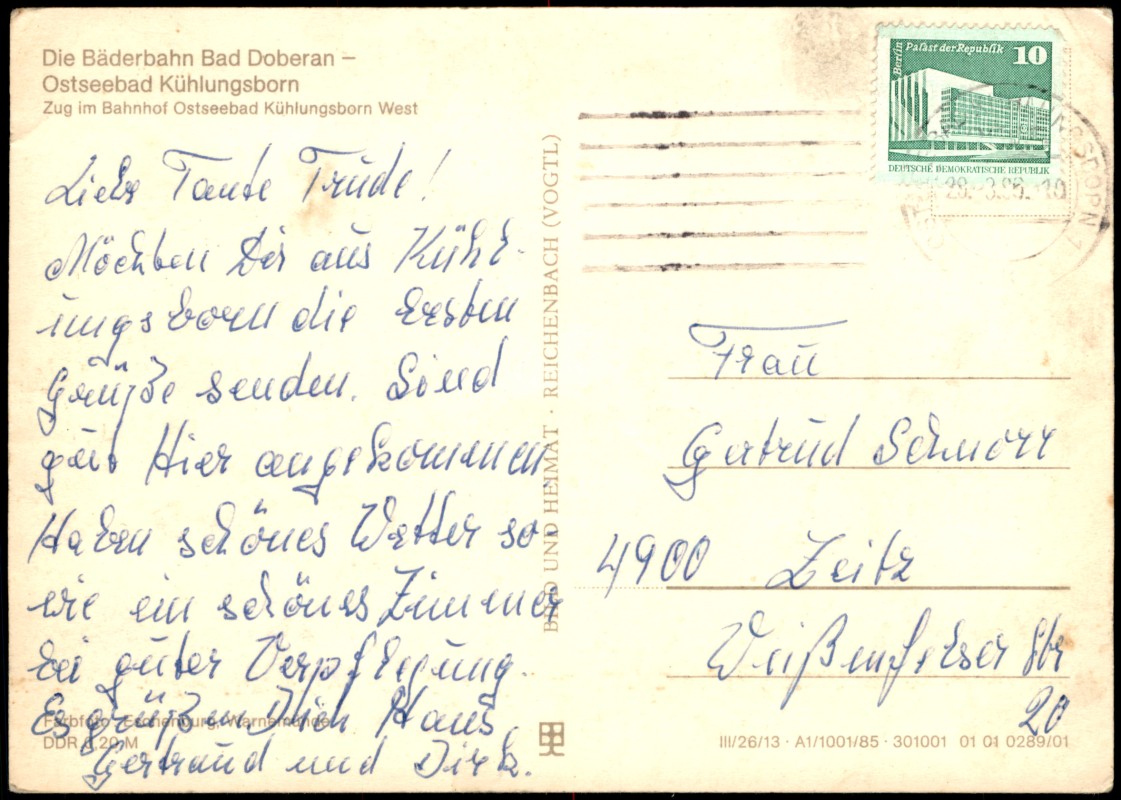 Die Bäderbahn Bad Doberan –
Ostseebad Kühlungsborn
Zug im Bahnhof Ostseebad Kühlungsborn West
Liebe Tante Trude!
Möchten Dir aus Kühl-
ungsborn die ersten
Grüße senden. Sind
gut Hier angekommen.
Haben schönes Wetter so-
wie ein schönes Zimmer
bei guter Verpflegung.
Es grüßen Dich Hans,
Gertraud und Dirk.
Farbfoto: Eschenburg, Warnemünde
DDR 0,20 M
BILD UND HEIMAT · REICHENBACH (VOGTL)
Berlin Palast der Republik 10
DEUTSCHE DEMOKRATISCHE REPUBLIK
Frau
Gertrud Schnorr
4900 Zeitz
Weißenfelser Str
20
III/26/13 · A1/1001/85 · 301001 01 01 0289/01